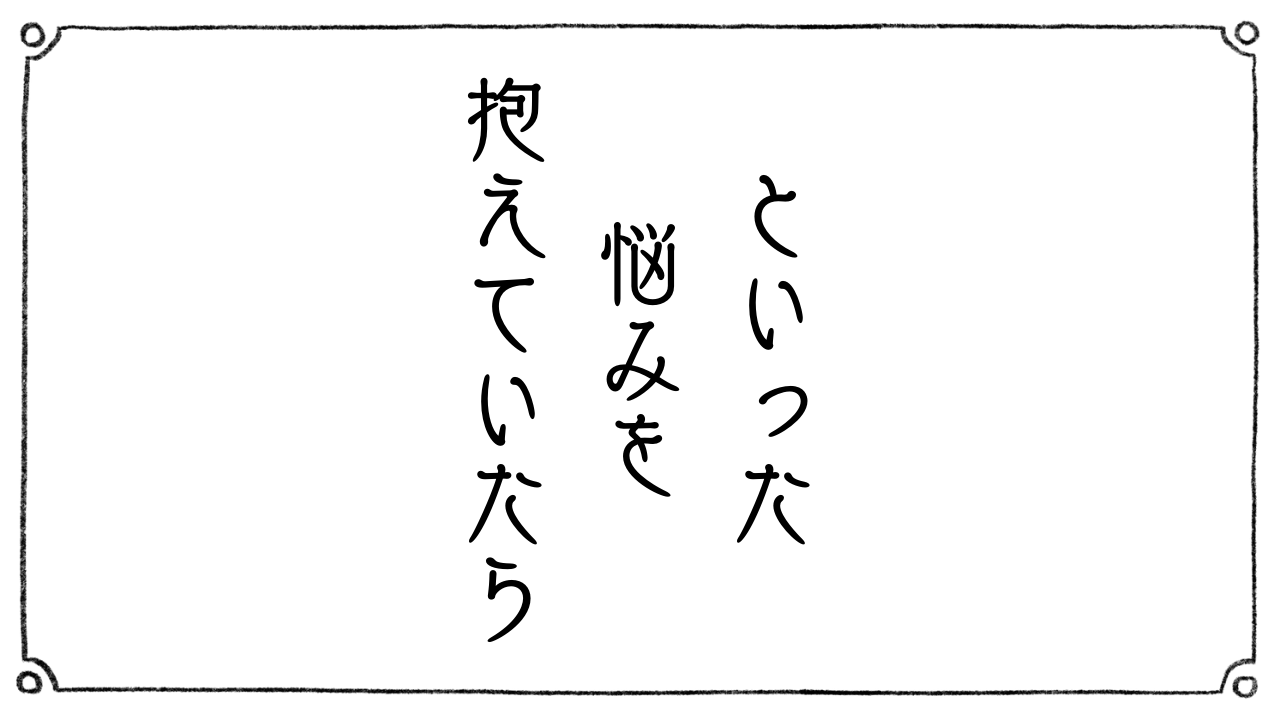 といった
悩みを
抱えていたら